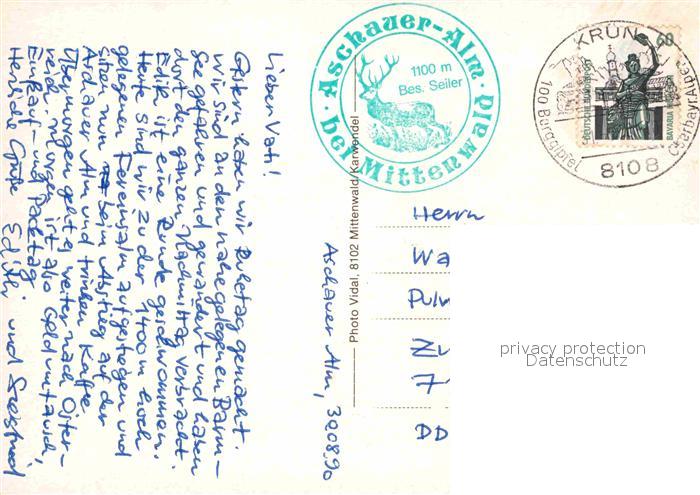 Lieber Vati!
Gestern haben wir Ruhetag gemacht.
Wir sind an den nahegelegenen Barm-
see gefahren und gewandert und haben
dort den ganzen Nachmittag verbracht.
Edith ist eine Runde geschwommen.
Heute sind wir zu der 1400 m hoch
gelegenen Fereinsalm aufgestiegen und
sitzen nun beim Abstieg auf der
Aschauer Alm und trinken Kaffee.
Übermorgen geht es weiter nach Öster-
reich, morgen ist also Geldumtausch,
Einkauf- und Packtag.
Herzliche Grüße Edith und
Aschauer Alm, 30.08.90
Photo Vidal, 8102 Mittenwald/Karwendel
Aschauer-Alm
1100 m
Bes. Seiler
bei Mittenwald
KRÜN
100 Berggipfel
8108
60
DEUTSCHE BUNDESPOST
BAVARIA MÜNCHEN
Herrn
Wa
Pulv
Zu
7
DD
privacy protection
Datenschutz